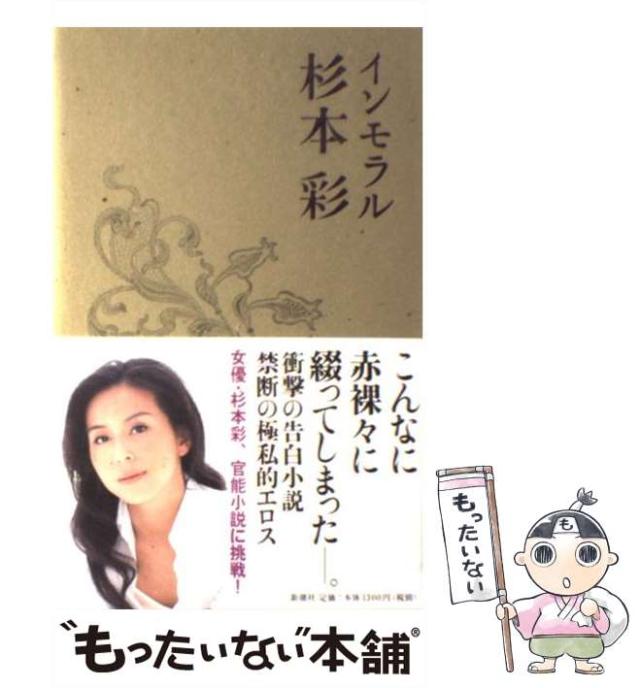 インモラル
杉本 彩
こんなに
赤裸々に
綴ってしまった――。
衝撃の告白小説
禁断の極私的エロス
女優・杉本彩、官能小説に挑戦！
新潮社 定価:本体1300円(税別)
もったいない
も
“もったいない”本舗®